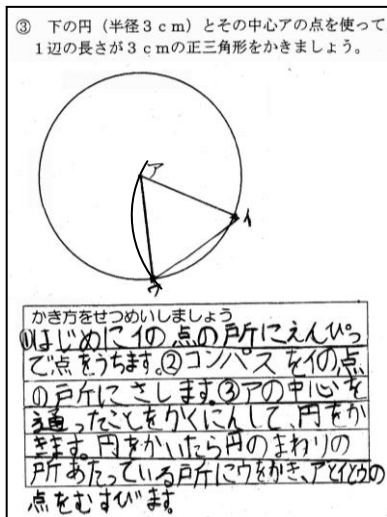 ③ 下の円（半径３ｃｍ）とその中心アの点を使って
１辺の長さが３ｃｍの正三角形をかきましょう。
ア
イ
ウ
かき方をせつめいしましょう
①はじめにイの点の所にえんぴつ
で点をうちます。②コンパスをイの点
①所にさします。③アの中心を
通ったことをかくにんして、円をか
きます。円をかいたら円のまわりの
所あたっている所にウをかき、アとイとウの
点をむすびます。